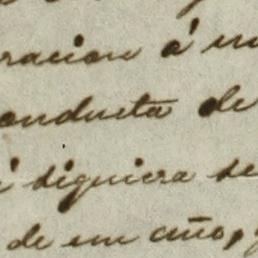 racion á un
onducta de
i siquiera se
de un año,